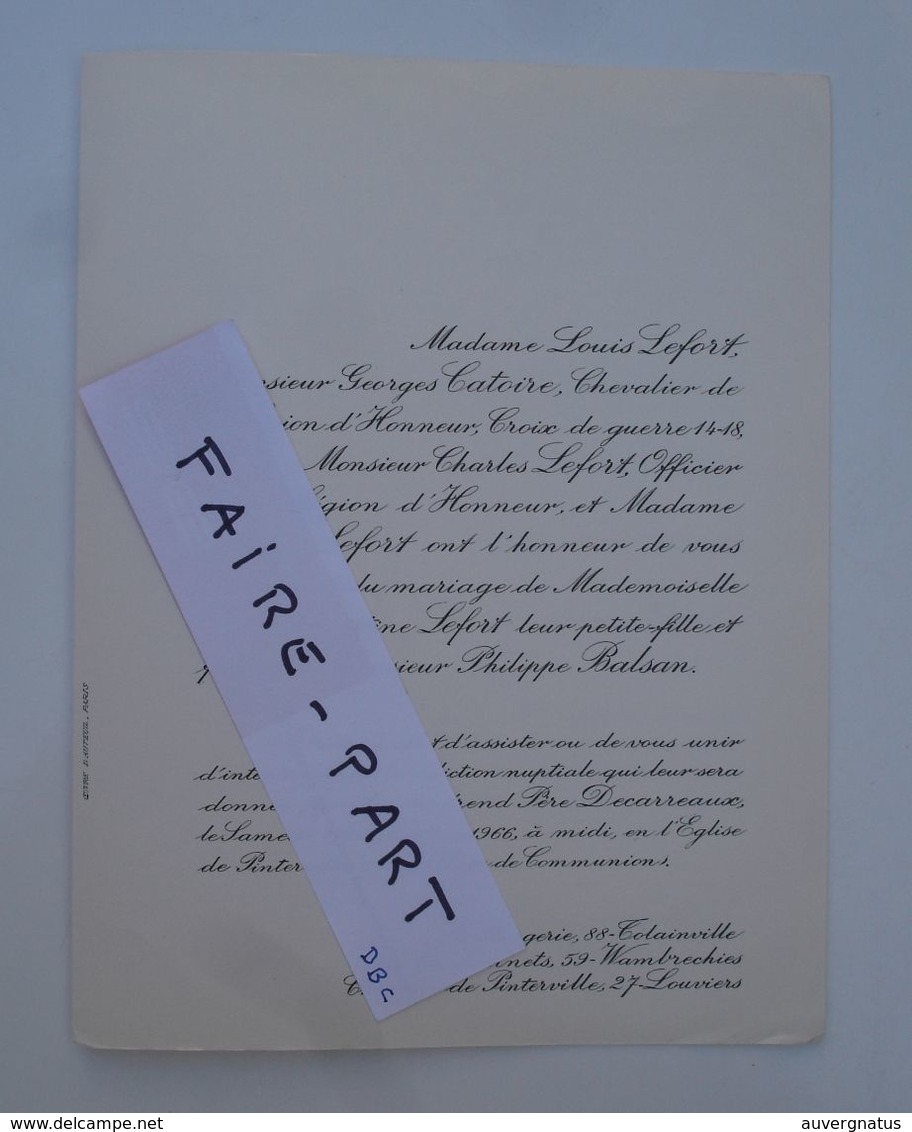 Madame Louis Lefort,
sieur Georges Catoire, Chevalier de
ion d'Honneur, Croix de guerre 14-18,
Monsieur Charles Lefort, Officier
égion d'Honneur, et Madame
Lefort ont l'honneur de vous
du mariage de Mademoiselle
ine Lefort leur petite-fille et
sieur Philippe Balsan.
t d'assister ou de vous unir
d'inte diction nuptiale qui leur sera
donné rend Père Decarreaux,
le Same 1966, à midi, en l'Eglise
de Pinter de Communion).
gerie, 88-Tolainville
nets, 59-Wambrechies
C de Pinterville, 27-Louviers
FAIRE-PART
DBC
ŒUVRE D'AUTEUIL, PARIS
delcampe.net
auvergnatus